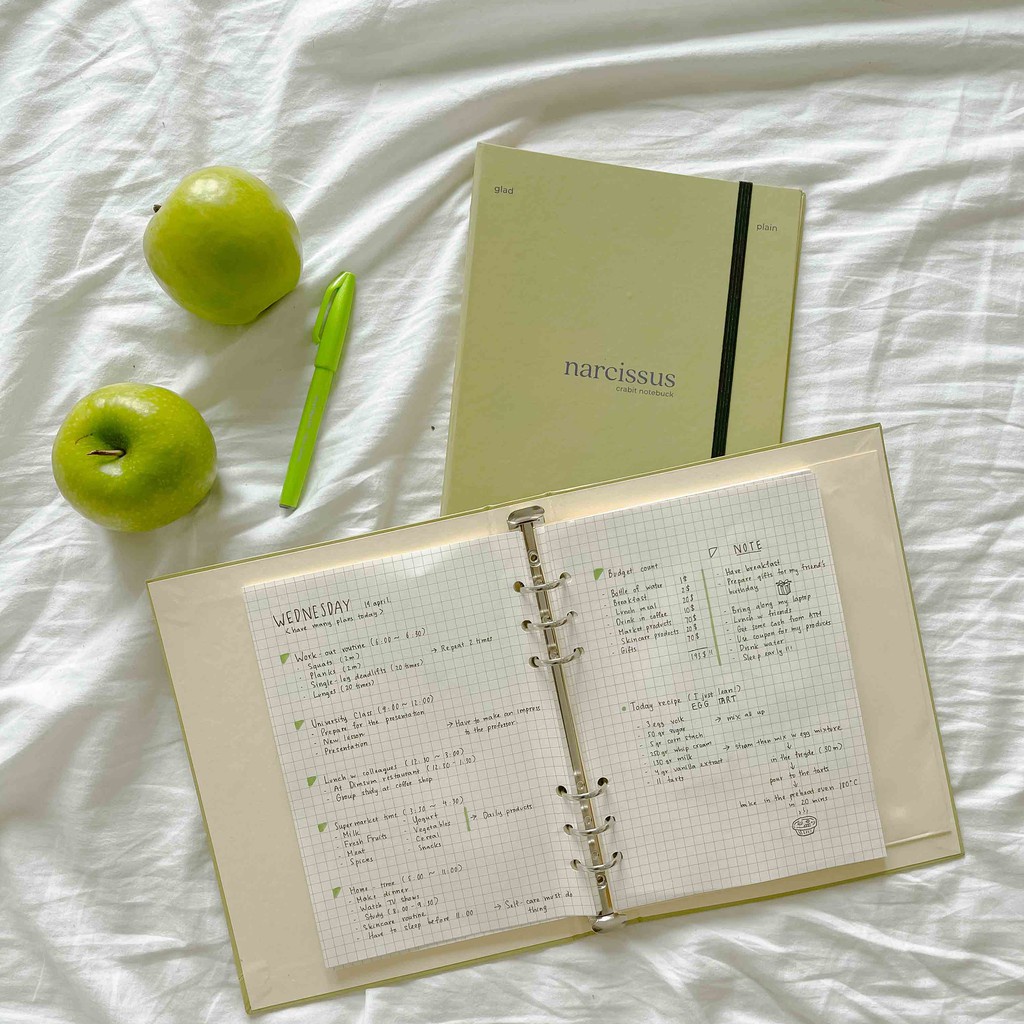 glad
plain
narcissus
crabit notebuck
WEDNESDAY 14 april
<have many plans today>
Work-out routine (6:00 ~ 6:30)
- Squats (2m)
- Planks (2m)
- Single-leg deadlifts (20 times)
- Lunges (20 times)
→ Repeat 2 times
University Class (9:00 ~ 12:00)
- Prepare for the presentation
- New lesson
- Presentation
→ Have to make an impress
to the professor
Lunch w colleagues (12:30 ~ 3:00)
- At Dimsum restaurant (12:30 - 1:30)
- Group study at coffee shop
Supermarket time (3:30 ~ 4:30)
- Milk
- Fresh Fruits
- Meat
- Spices
- Yogurt
- Vegetables
- Cereal
- Snacks
→ Daily products
Home-time (5:00 ~ 11:00)
- Make dinner
- Watch TV shows
- Study (8:00 - 9:30)
- Skincare routine
- Have to sleep before 11:00
→ Self-care must do
thing
Budget count
- Bottle of water 1$
- Breakfast 2$
- Lunch meal 20$
- Drink in coffee 10$
- Market products 70$
- Skincare products 20$
- Gifts 70$
NOTE
- Have breakfast
- Prepare gifts for my friend's
birthday
- Bring along my laptop
- Lunch w friends
- Get some cash from ATM
- Use coupon for my products
- Drink water
- Sleep early!!!
Today recipe (I just lean!)
EGG TART
- 3 egg yolk
- 50 gr sugar
- 5 gr corn stach
- 250 gr whip cream
- 130 gr milk
- 4 gr vanilla extract
- 11 tarts
→ mix as up
→ steam then mix w egg mixture
in the frigde (30m)
pour to the tarts
bake in the preheat oven 180°C
in 20 mins